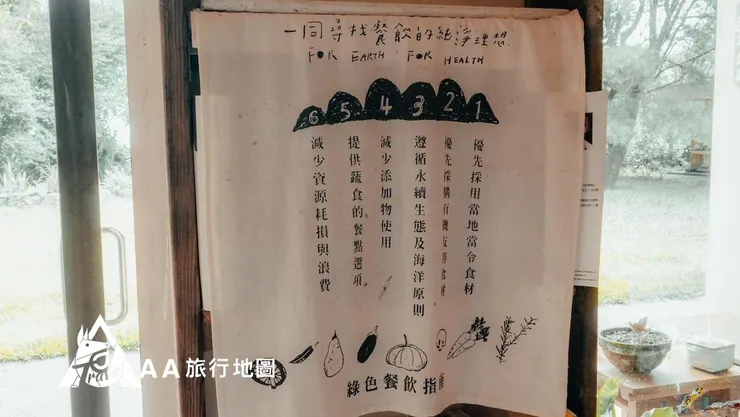 一同尋找餐飲的純淨理想
FOR EARTH FOR HEALTH
1
優先採用當地當令食材
2
優先採購有機友善食材
3
遵循永續生態及海洋原則
4
減少添加物使用
5
提供蔬食的餐點選項
6
減少資源耗損與浪費
綠色餐飲指南
AA旅行地圖